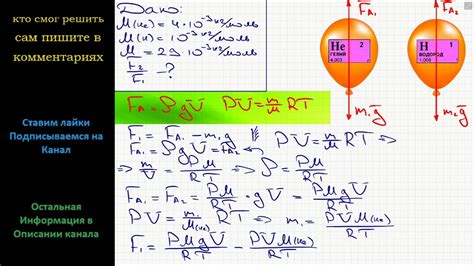 кто смог решить
сам пишите в
комментариях
Ставим лайки
Подписываемся на
Канал
Остальная
Информация в
Описании канала
Дано:
M(He) = 4·10⁻³ кг/моль
M(H) = 10⁻³ кг/моль
M = 29·10⁻³ кг/моль
F₂/F₁ - ?
F_A = ρgV PV = m/M RT
F₁ = F_A₁ - m₁g PV = m/M RT ⇒
F_A₁ = ρgV = F_A₂
⇒ m/V = PM/RT ⇒ ρ = PM/RT
F_A₁ = F_A₂ = PM/RT · gV = PMgV/RT
PV = m₁/M(He) RT ⇒ m₁ = PVM(He)/RT
F₁ = PMgV/RT - PVM(He)/RT
F_A₁
He 2
ГЕЛИЙ
4,003
m₁g
F_A₂
H 1
ВОДОРОД
1,008
m₂g